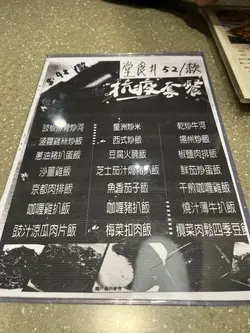 堂食#52/款
抗疫套餐
豉椒排骨炒河 星洲炒米 乾炒牛河
菠蘿雞絲炒飯 西式炒飯 揚州炒飯
蔥油豬扒蛋飯 豆腐火腩飯 椒鹽肉排飯
沙薑雞飯 芝士茄汁焗豬扒飯 鮮茄炒蛋飯
京都肉排飯 魚香茄子飯 干煎咖喱雞飯
咖喱雞扒飯 咖喱豬扒飯 燒汁薄牛扒飯
豉汁涼瓜肉片飯 梅菜扣肉飯 欖菜肉鬆四季豆飯